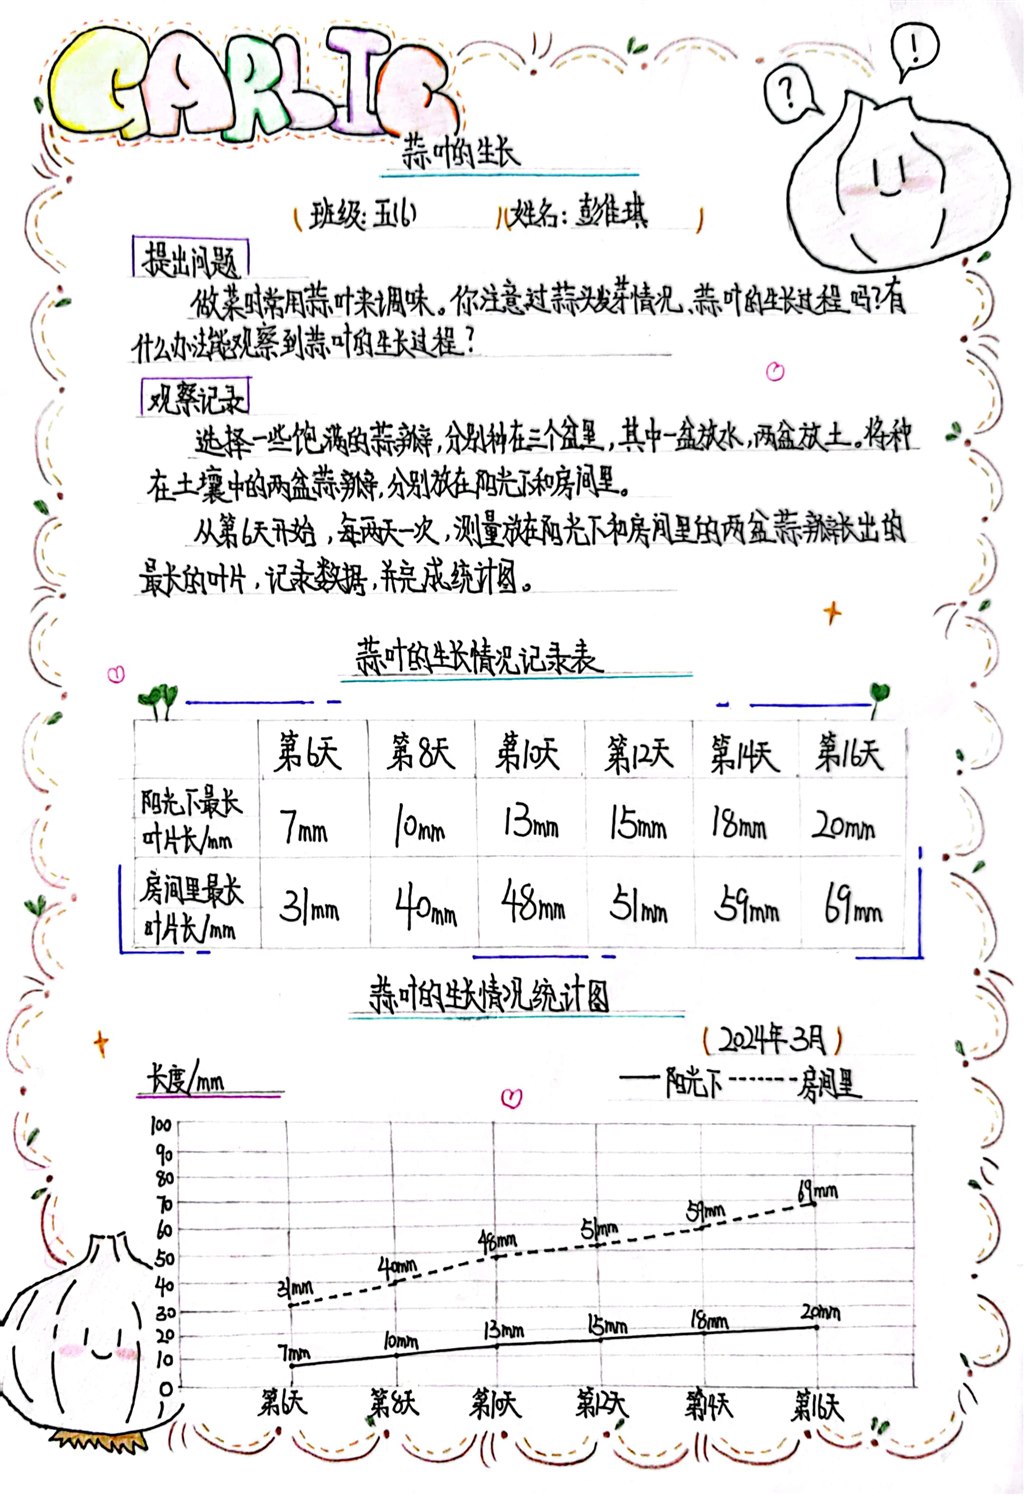 GARLIC
?
!
蒜叶的生长
(班级:五(6) )(姓名:彭佳琪 )
提出问题
做菜时常用蒜叶来调味。你注意过蒜头发芽情况、蒜叶的生长过程吗?有
什么办法能观察到蒜叶的生长过程?
观察记录
选择一些饱满的蒜瓣,分别种在三个盆里,其中一盆放水,两盆放土。将种
在土壤中的两盆蒜瓣,分别放在阳光下和房间里。
从第6天开始,每两天一次,测量放在阳光下和房间里的两盆蒜瓣长出的
最长的叶片,记录数据,并完成统计图。
蒜叶的生长情况记录表
第6天 第8天 第10天 第12天 第14天 第16天
阳光下最长
叶片长/mm 7mm 10mm 13mm 15mm 18mm 20mm
房间里最长
叶片长/mm 31mm 40mm 48mm 51mm 59mm 69mm
蒜叶的生长情况统计图
(2024年3月)
长度/mm 阳光下 房间里
100
90
80
70 69mm
60 59mm
50 48mm 51mm
40 31mm 40mm
30
20 13mm 15mm 18mm 20mm
10 7mm 10mm
0
第6天 第8天 第10天 第12天 第14天 第16天